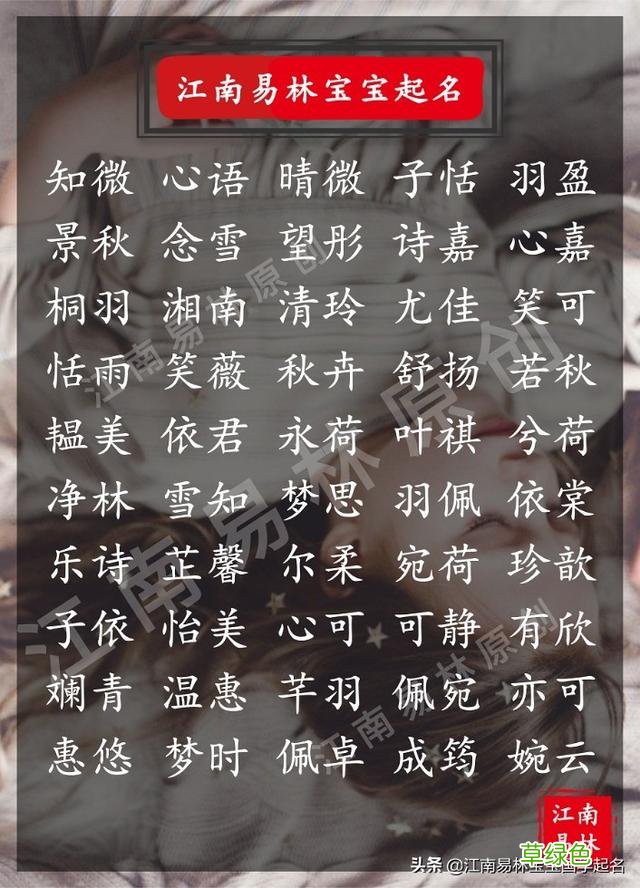 江南易林宝宝起名
知微 心语 晴微 子恬 羽盈
景秋 念雪 望彤 诗嘉 心嘉
桐羽 湘南 清玲 尤佳 笑可
恬雨 笑薇 秋卉 舒扬 若秋
韫美 依君 永荷 叶祺 兮荷
净林 雪知 梦思 羽佩 依棠
乐诗 芷馨 尔柔 宛荷 珍歆
子依 怡美 心可 可静 有欣
斓青 温惠 芊羽 佩宛 亦可
惠悠 梦时 佩卓 成筠 婉云
江南易林原创
江南易林原创
江南易林原创
江南
易林
草绿色
头条 @江南易林宝宝国学起名